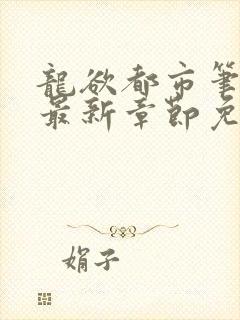 龍欲都市筆
最新章節免
娟子